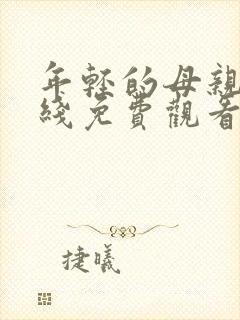 年輕的母親
綫免費觀看
捷曦